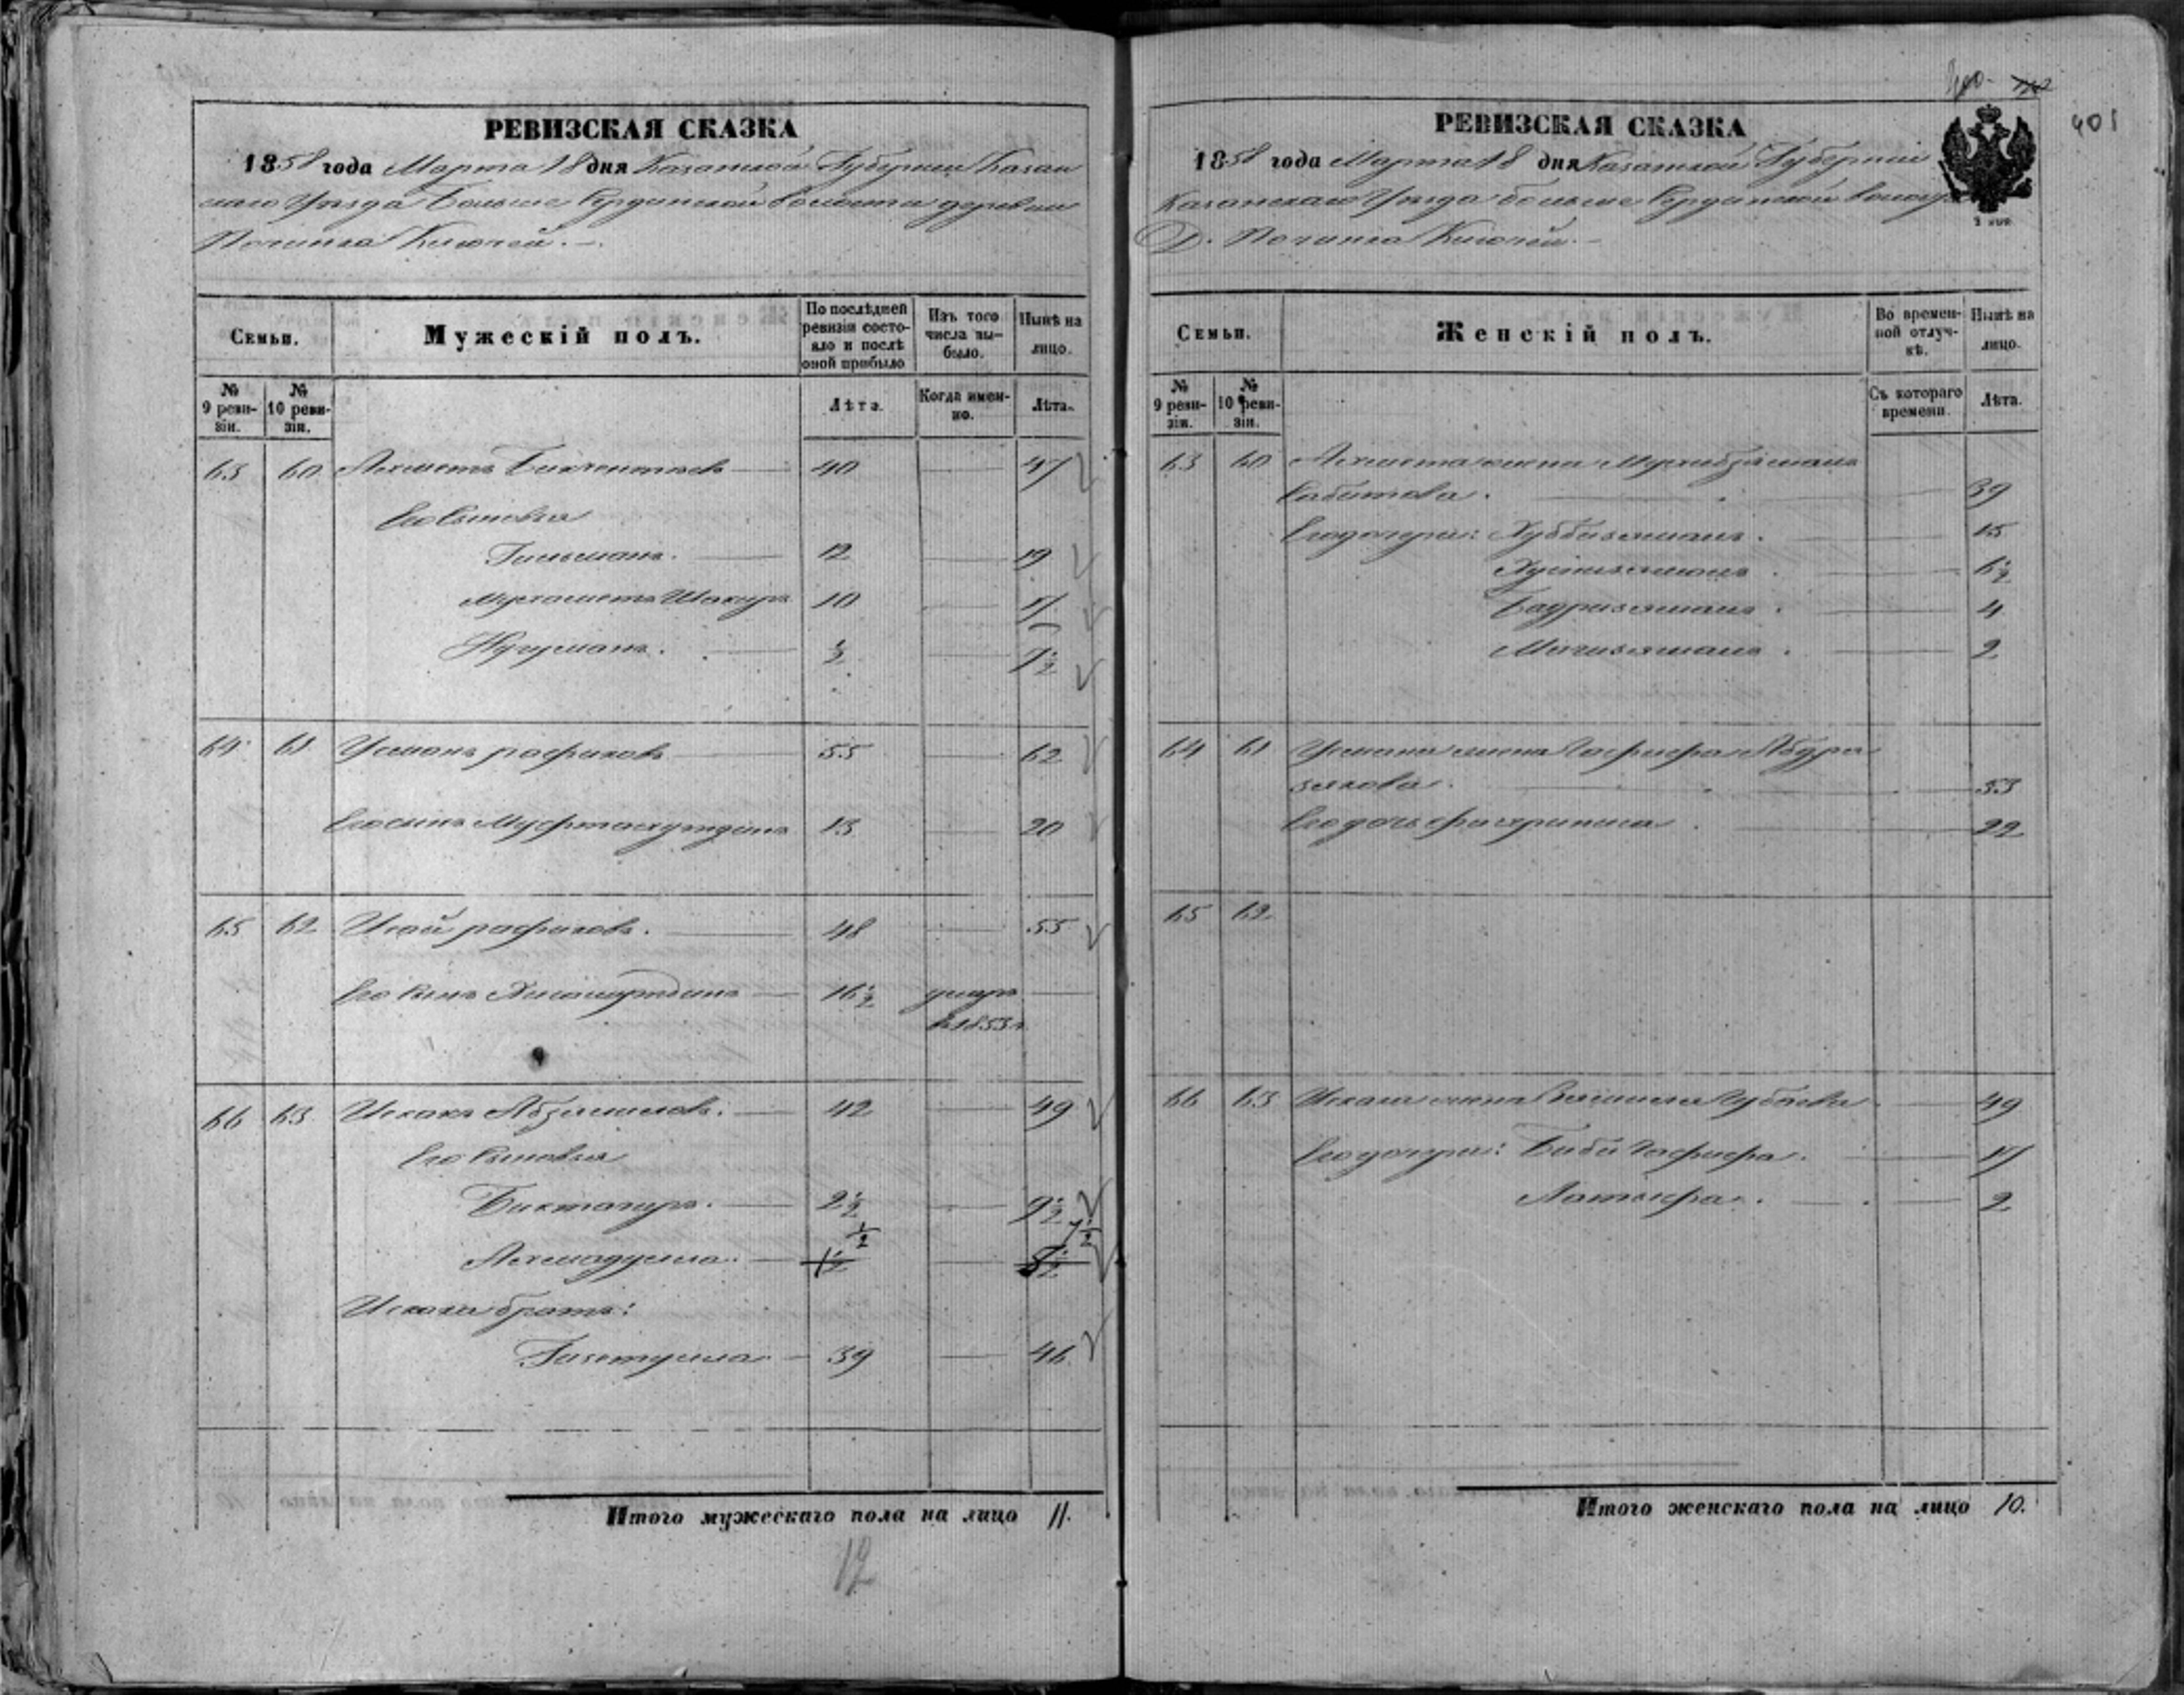 РЕВИЗСКАЯ СКАЗКА
1858 года Марта 18 дня Казанской Губернии Казан
скаго Уезда Больше Сердинской волости деревни
Починка Ключей.
Семьи.
Мужескій полъ.
По послѣдней ревизіи состояло и послѣ оной прибыло
Изъ того числа выбыло.
Нынѣ на лицо.
№ 9 ревизіи.
№ 10 ревизіи.
Лѣта.
Когда именно.
Лѣта.
63 60 Ахметъ Бикчентаевъ 40 — 47
Его сыновья
Гильманъ. 12 — 19
Мухаметъ Шакуръ 10 — 17
Нугуманъ. 1/2 — 7 1/2
64 61 Усманъ рафиковъ 55 — 62
Его сынъ Муфтахутдинъ 13 — 20
65 62 Исай рафиковъ. 48 — 55
Его сынъ 16 1/2 умеръ —
въ 1853 г.
66 63 Исхакъ 42 — 49
Его сыновья
Биктагиръ. 2 1/2 — 9 1/2
1/2 7 1/2
Ахмадулла. 1 1/2 — 8 1/2
Исхака братъ:
39 — 46
Итого мужескаго пола на лицо 11.
12
400
401
РЕВИЗСКАЯ СКАЗКА
1858 года Марта 18 дня Казанской Губерніи
Казанскаго Уезда больше Сердинской волости
Д. Починка Ключей.
Семьи.
Женскій полъ.
Во временной отлучкѣ.
Нынѣ на лицо.
№ 9 ревизіи.
№ 10 ревизіи.
Съ котораго времени.
Лѣта.
63 60 Ахмета жена
Сабитова. 39
Его дочери: Хуббизямалъ. 15
6 1/2
Бадризямалъ. 4
2
64 61 Усмана жена Гафифа Абдра
зякова. 53
Его дочь 22
65 62
66 63 Исхака жена 49
Его дочери: Биби Гафифа. 17
Латыфа. 2
Итого женскаго пола на лицо 10.